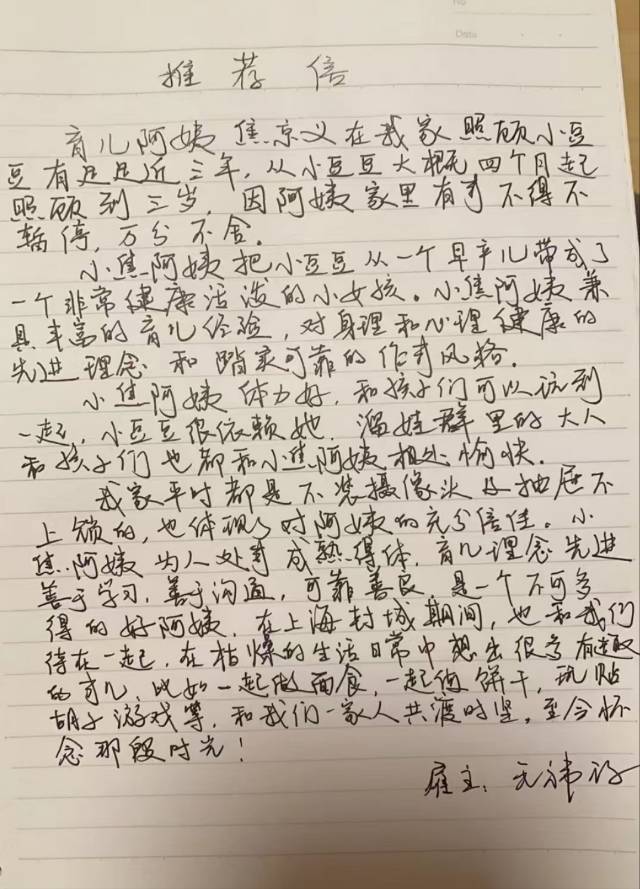 No
Date
推荐信
育儿阿姨焦京义在我家照顾小豆
豆有足足近三年,从小豆豆大概四个月起
照顾到三岁,因阿姨家里有事不得不
暂停,万分不舍。
小焦阿姨把小豆豆从一个早产儿带成了
一个非常健康活泼的小女孩。小焦阿姨兼
具丰富的育儿经验,对身理和心理健康的
先进理念和踏实可靠的作事风格.
小焦阿姨体力好,和孩子们可以玩到
一起,小豆豆很依赖她.溜娃群里的大人
和孩子们也都和小焦阿姨相处愉快.
我家平时都是不装摄像头及抽屉不
上锁的,也体现了对阿姨的充分信任。小
焦阿姨为人处事成熟得体,育儿理念先进
善于学习,善于沟通,可靠善良,是一个不可多
得的好阿姨.在上海封城期间,也和我们
待在一起,在枯燥的生活日常中想出很多有趣
的事儿,比如一起做面食,一起烤饼干,玩贴
胡子游戏等,和我们一家人共渡时坚,至今怀
念那段时光!
雇主: